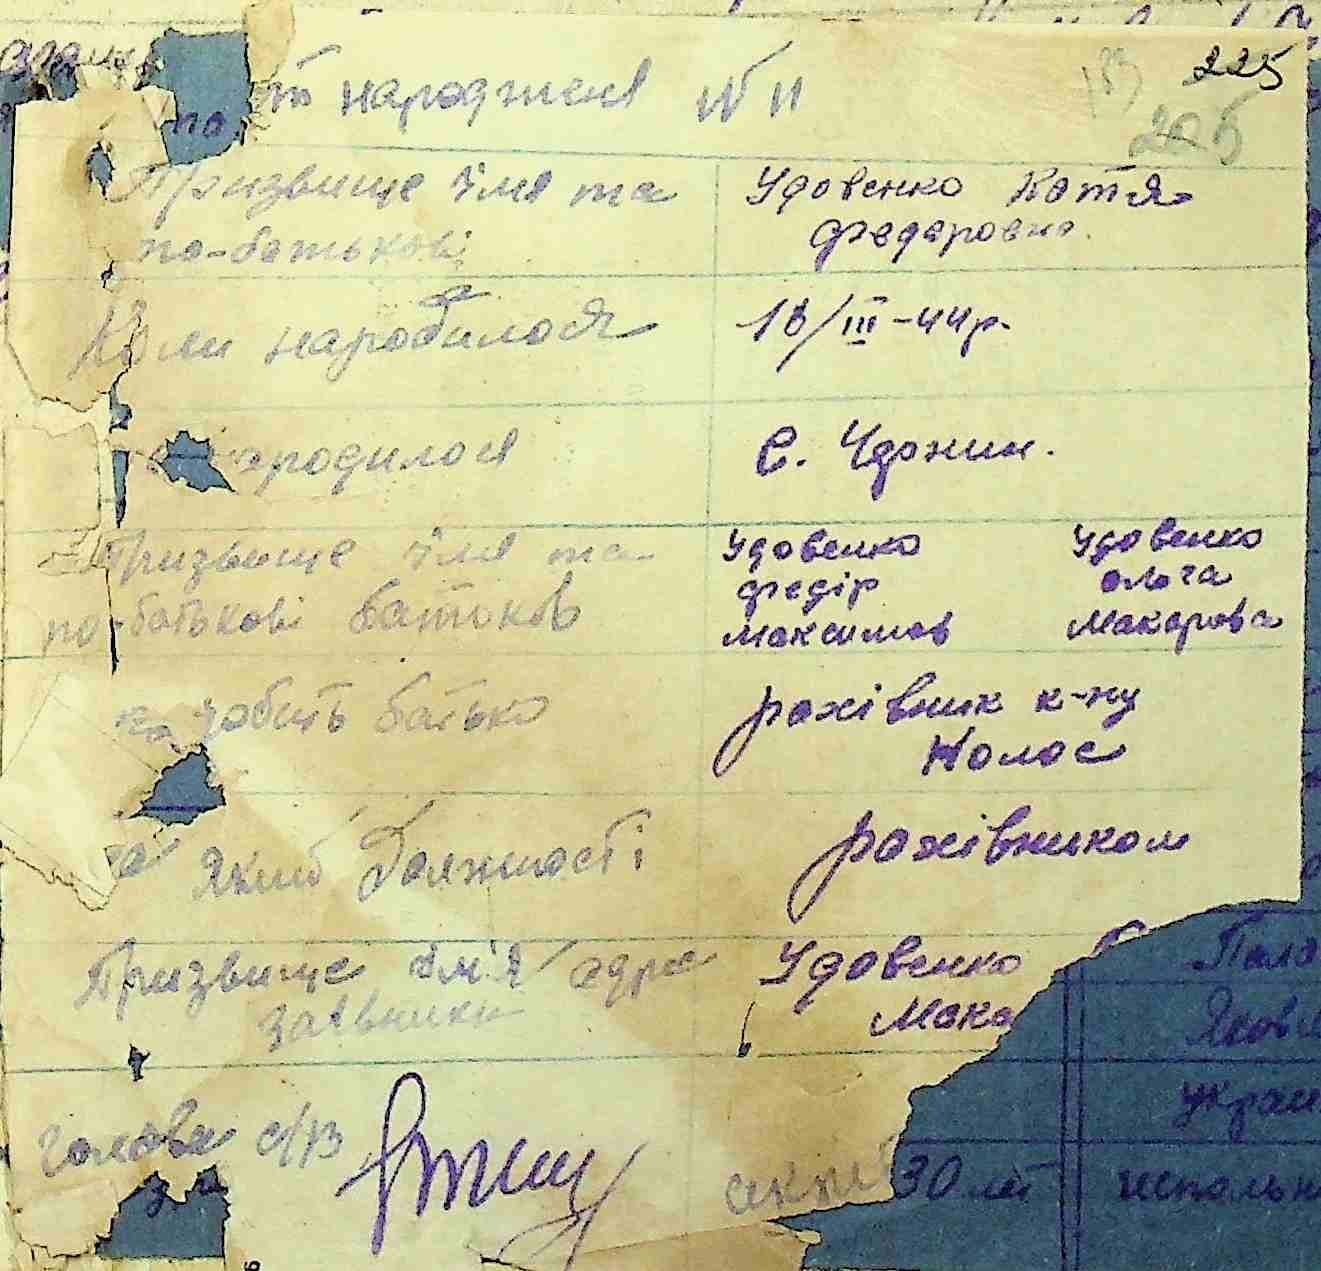 225
183
205
народженя № 11
Призвище імя та
по-батькові
Удовенко Котя
федаровна.
Коли народилося
18/III-44р.
ародилося
С. Чдонин.
Призвище імя та
по-батькові батьков
Удовенко
федір
максимов
Удовенко
ольга
макарова
робить батько
рахівник к-пу
Колос
на якій должності
рахівником
Призвище ім'я адре
заявника
Удовенко
Мака
голова с/в
секр
30 лет
Поло
Яковл
украи
исполь